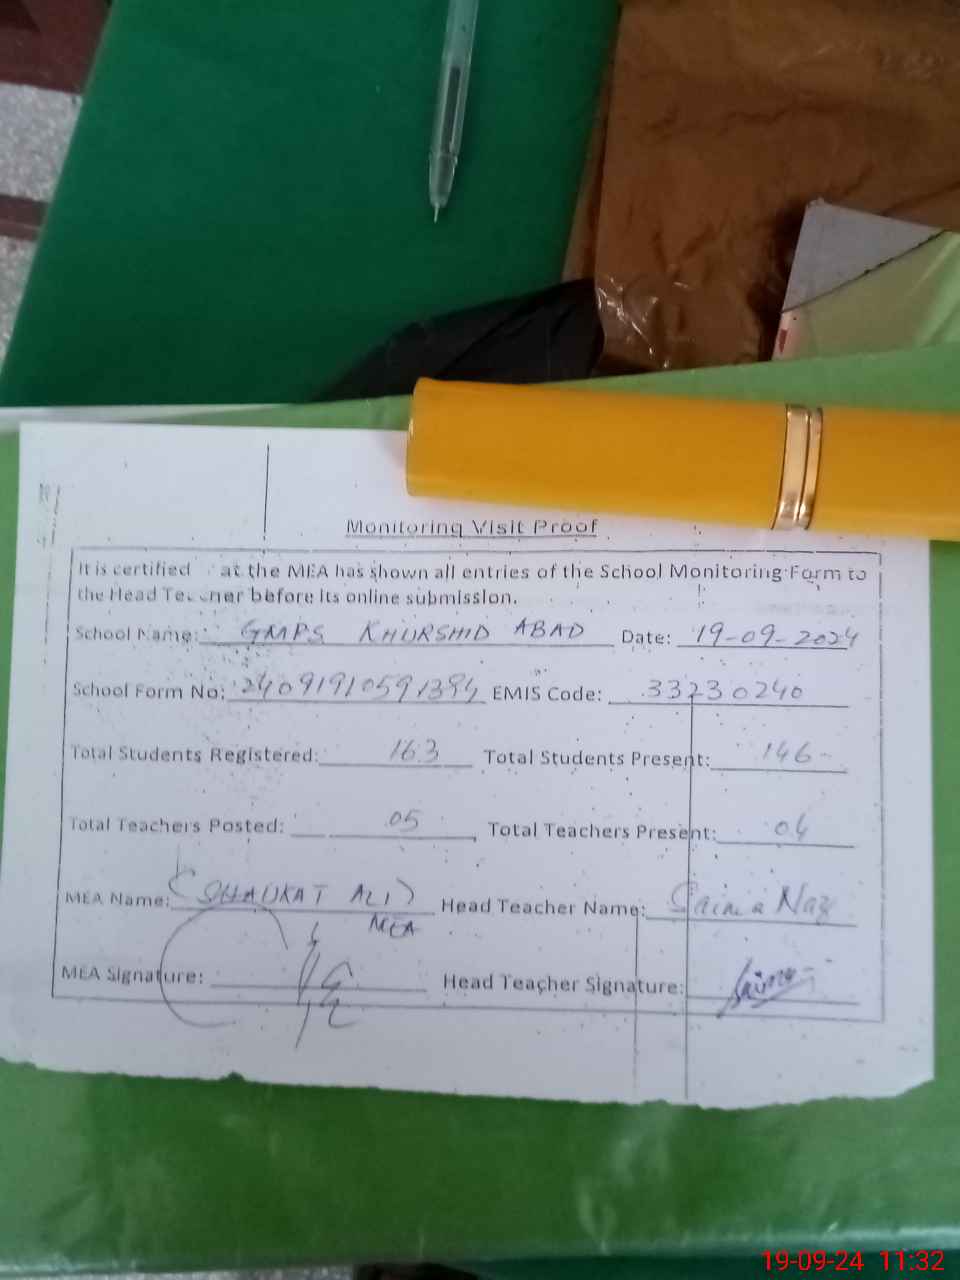 Monitoring Visit Proof
It is certified at the MEA has shown all entries of the School Monitoring Form to
the Head Teacner before its online submission.
School Name: GMPS KHURSHID ABAD Date: 19-09-2024
School Form No: 24091910591394 EMIS Code: 33230240
Total Students Registered: 163 Total Students Present: 146
Total Teachers Posted: 05 Total Teachers Present: 04
MEA Name: (SHAUKAT ALI) Head Teacher Name: Saima Naz
MEA
MEA Signature: Head Teacher Signature: Saima
19-09-24 11:32